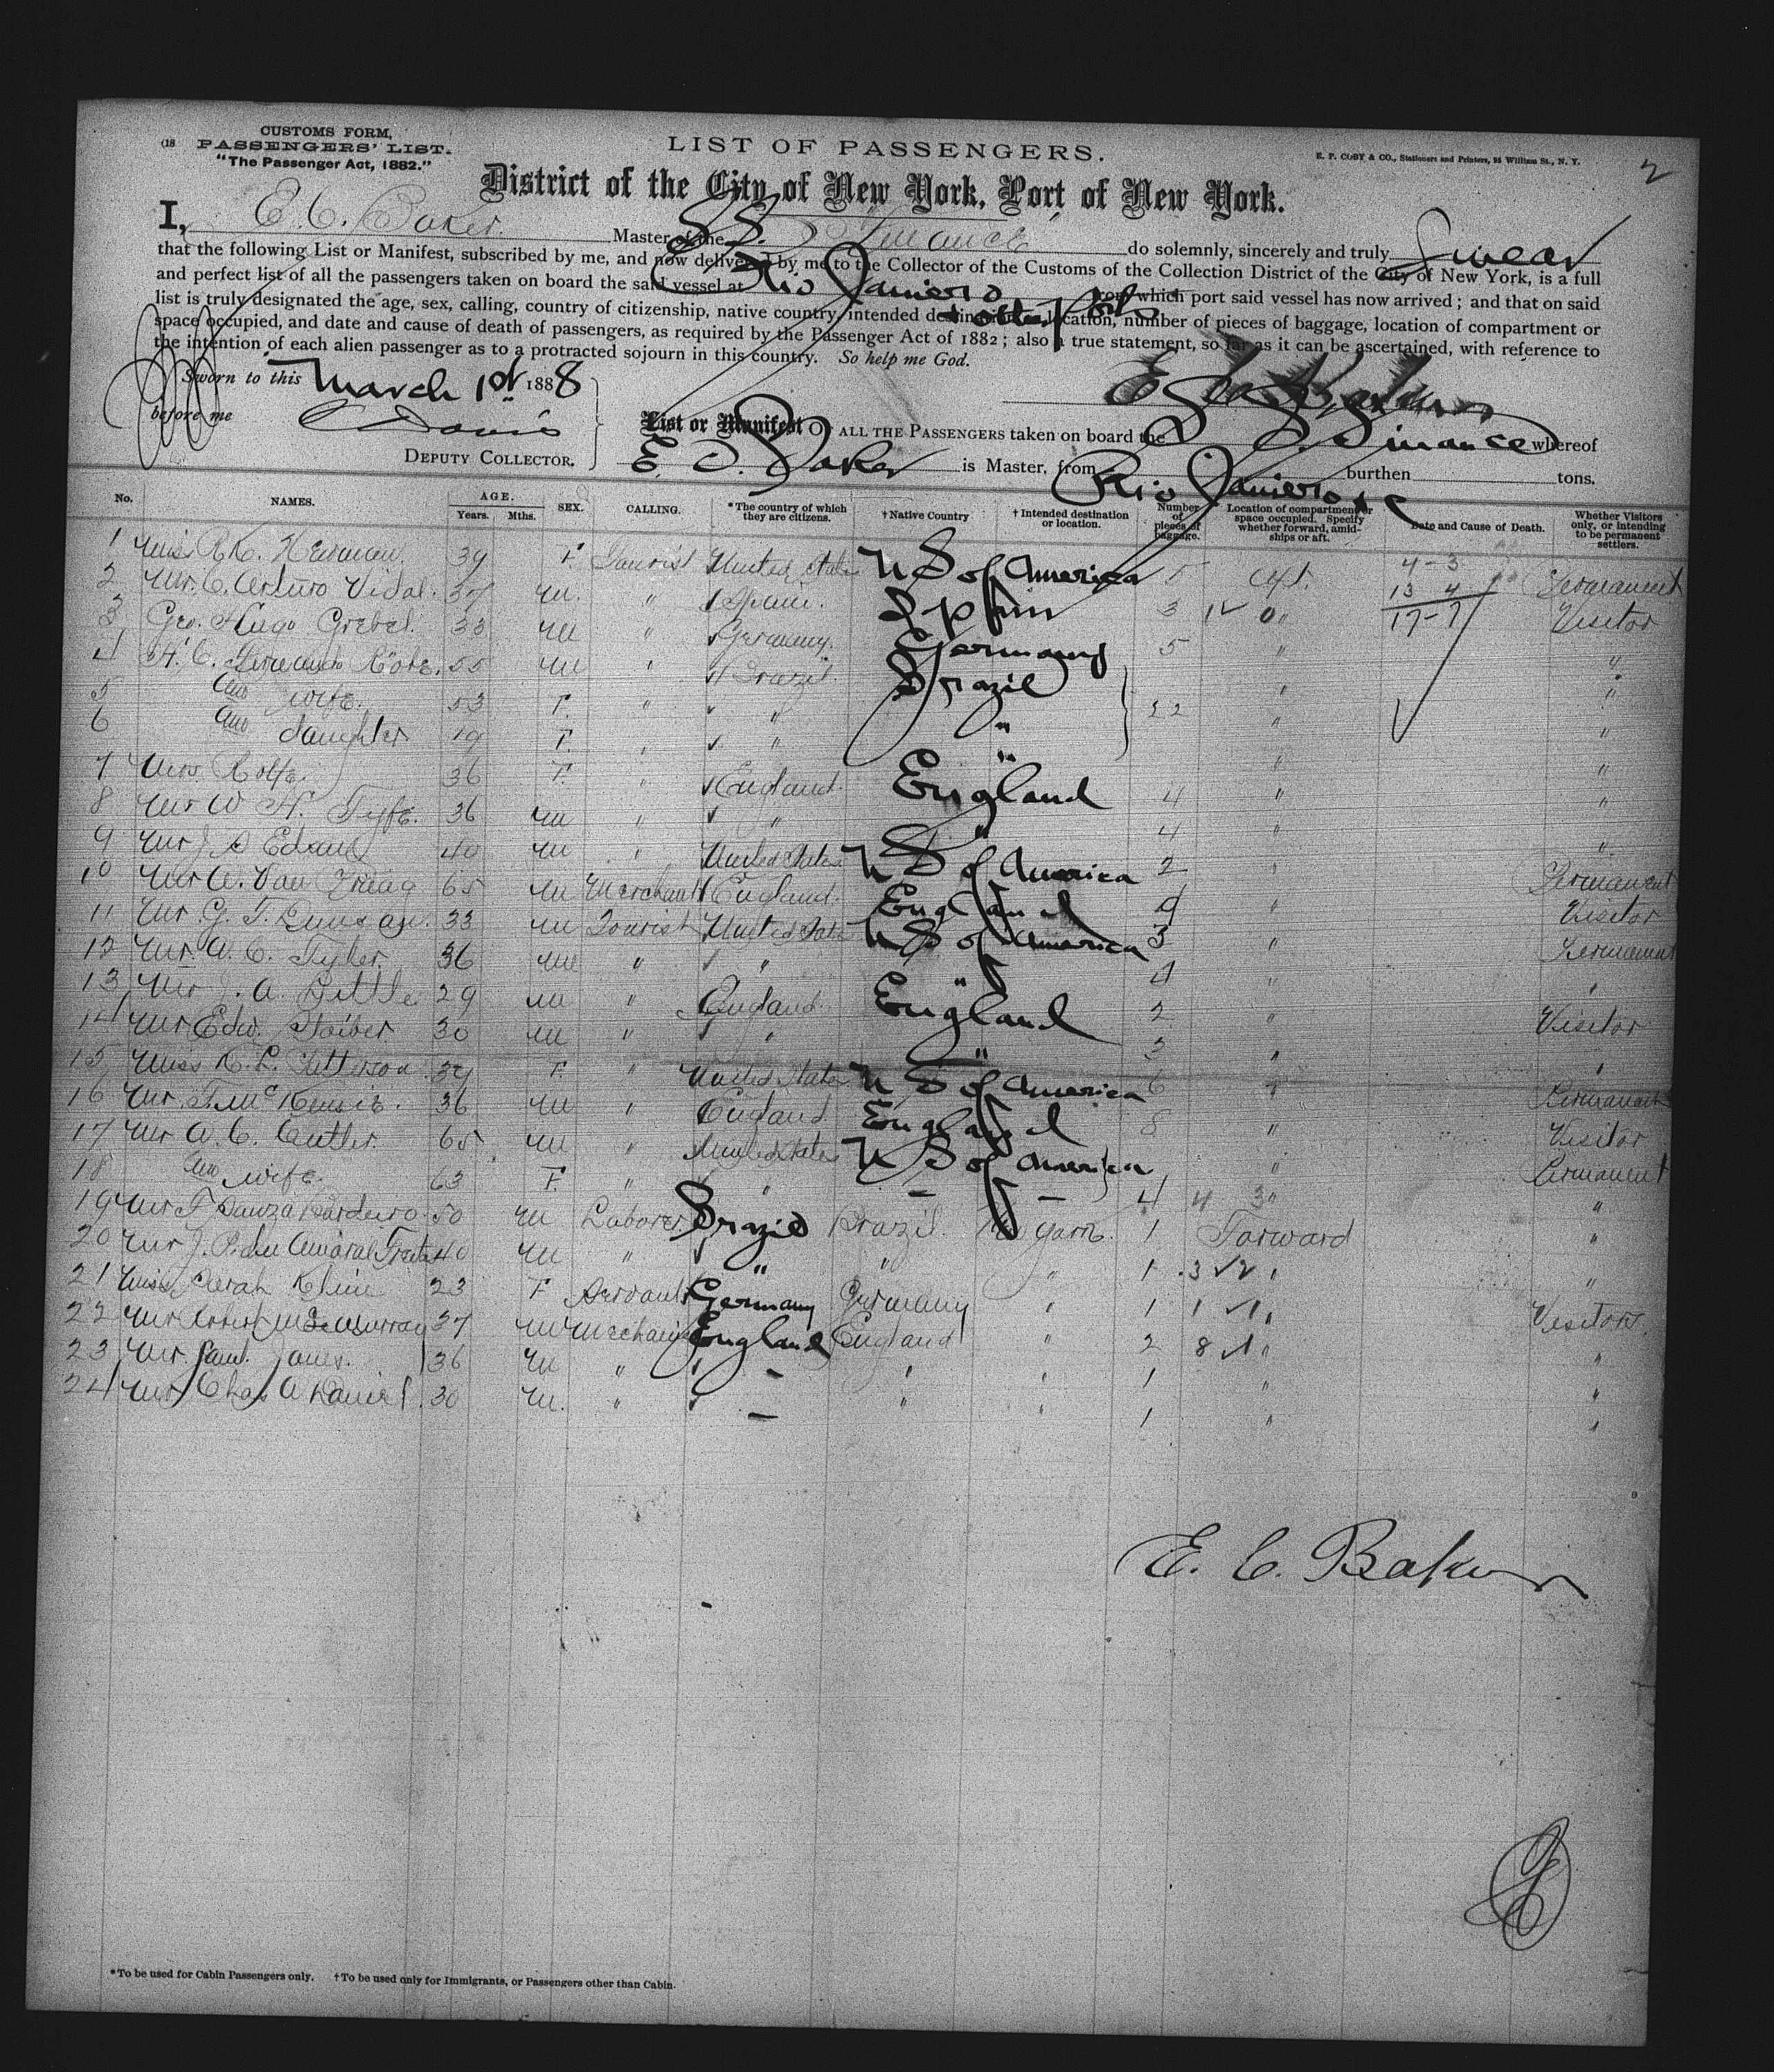 CUSTOMS FORM,
(18 PASSENGERS' LIST.
"The Passenger Act, 1882."
LIST OF PASSENGERS.
E. P. COBY & CO., Stationers and Printers, 95 William St., N. Y.
2
District of the City of New York, Port of New York.
I, E. C. Baker. Master of the S.S. Finance do solemnly, sincerely and truly Swear
that the following List or Manifest, subscribed by me, and now delivered by me to the Collector of the Customs of the Collection District of the City of New York, is a full
and perfect list of all the passengers taken on board the said vessel at Rio Janiero from which port said vessel has now arrived; and that on said
list is truly designated the age, sex, calling, country of citizenship, native country, intended destination or location, number of pieces of baggage, location of compartment or
space occupied, and date and cause of death of passengers, as required by the Passenger Act of 1882; also a true statement, so far as it can be ascertained, with reference to
the intention of each alien passenger as to a protracted sojourn in this country. So help me God.
Sworn to this March 1st 1888
before me Davis
DEPUTY COLLECTOR.
List or Manifest OF ALL THE PASSENGERS taken on board the S. S. Finance whereof
E. C. Baker is Master, from Rio Janiero burthen tons.
No. NAMES. AGE. Years. Mths. SEX. CALLING. *The country of which they are citizens. †Native Country †Intended destination or location. Number of pieces of baggage. Location of compartment or space occupied. Specify whether forward, amidships or aft. Date and Cause of Death. Whether Visitors only, or intending to be permanent settlers.
1 Miss 39 F Tourist United States U S of America 5 Aft. 4-3 Permanent
2 Mr. C. Arturo Vidal. M. " Spain. Spain 3 " 13 4 Visitor
3 Geo. Hugo Grebel. 33 M " Germany. Germany 5 " 17-7 "
4 H. C. 55 M " Brazil. Brazil "
5 and wife. 53 F. " " " 22 " "
6 and daughter 19 F. " " " " "
7 Mrs. Rolfe. 36 F. " England. England 4 " "
8 Mr W. H. Fyfe. 36 M " " " 4 " "
9 Mr J. 40 M " United States U S of America 2 " Permanent
10 Mr W. Van 65 M Merchant England. England 4 " Visitor
11 Mr. G. F. Duncan. 33 M Tourist United States U S of America 3 " Permanent
12 Mr. A. C. Tyler. 36 M " " " 4 " "
13 Mr J. A. Little 29 M " England England 2 " Visitor
14 Mr Edw. 30 M " " " 3 " "
15 Miss K. L. F. " United States U S of America 6 " Permanent
16 Mr. F. McKensie. 36 M " England England 8 " Visitor
17 Mr A. C. Cutler. 65 M " United States U S of America " Permanent
18 and wife. 63 F. " " 4 " "
19 Mr F Souza Cordeiro 50 M Laborer. Brazil Brazil. 1 Forward "
20 Mr J. P. Amaral 40 M " " " " 1 3 " "
21 Miss Sarah Kline 23 F Servant Germany Germany " 1 1 " Visitors.
22 Mr Robert McMurray 37 M Mechanic England England " 2 8 " "
23 Mr. Saml. Jones. 36 M " " " 1 "
24 Mr. Chas A Daniel. 30 M. " " " 1 " "
E. C. Baker
*To be used for Cabin Passengers only. †To be used only for Immigrants, or Passengers other than Cabin.